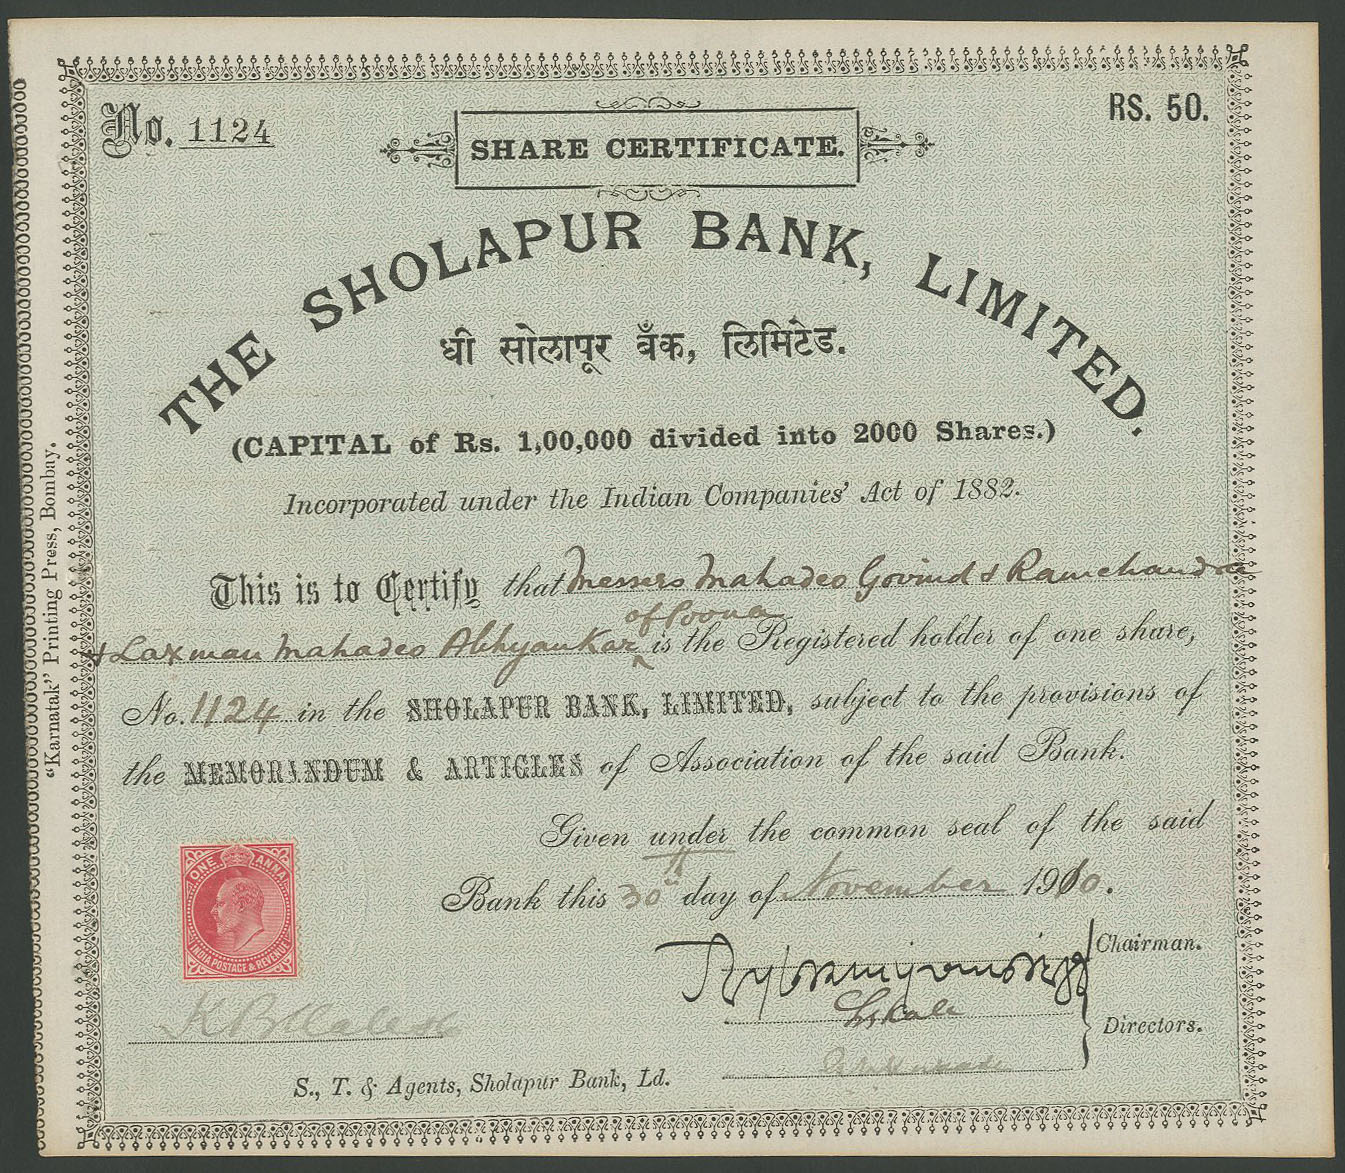 No. 1124
RS. 50.
SHARE CERTIFICATE.
THE SHOLAPUR BANK, LIMITED.
धी सोलापूर बँक, लिमिटेड.
(CAPITAL of Rs. 1,00,000 divided into 2000 Shares.)
Incorporated under the Indian Companies' Act of 1882.
This is to Certify that Messers Mahadeo Govind & Ramchandra
of Poona
& Laxman Mahadeo Abhyankar is the Registered holder of one share,
No. 1124 in the SHOLAPUR BANK, LIMITED, subject to the provisions of
the MEMORANDUM & ARTICLES of Association of the said Bank.
Given under the common seal of the said
Bank this 30th day of November 1910.
ONE ANNA
INDIA POSTAGE & REVENUE
Chairman.
Directors.
S., T. & Agents, Sholapur Bank, Ld.
"Karnatak" Printing Press, Bombay.